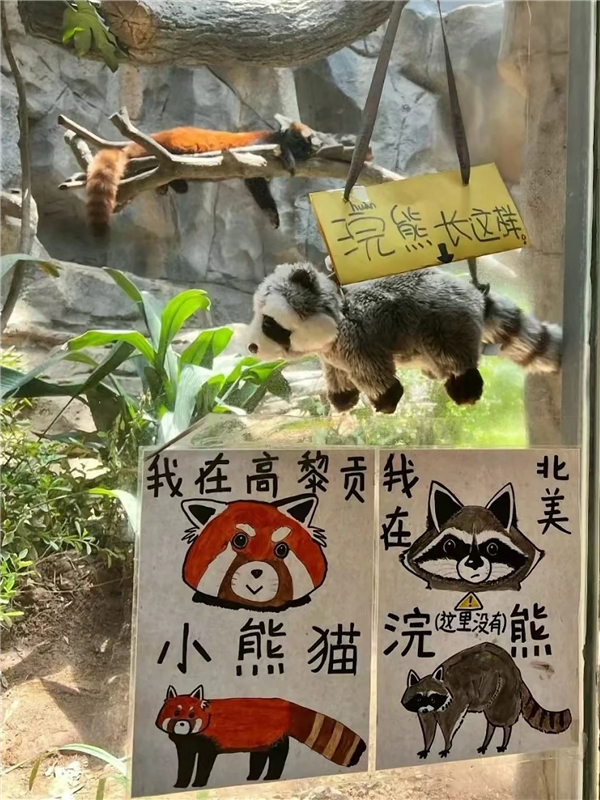 huàn
浣熊长这样。
我在高黎贡
小熊猫
我在
北美
(这里没有)
浣熊